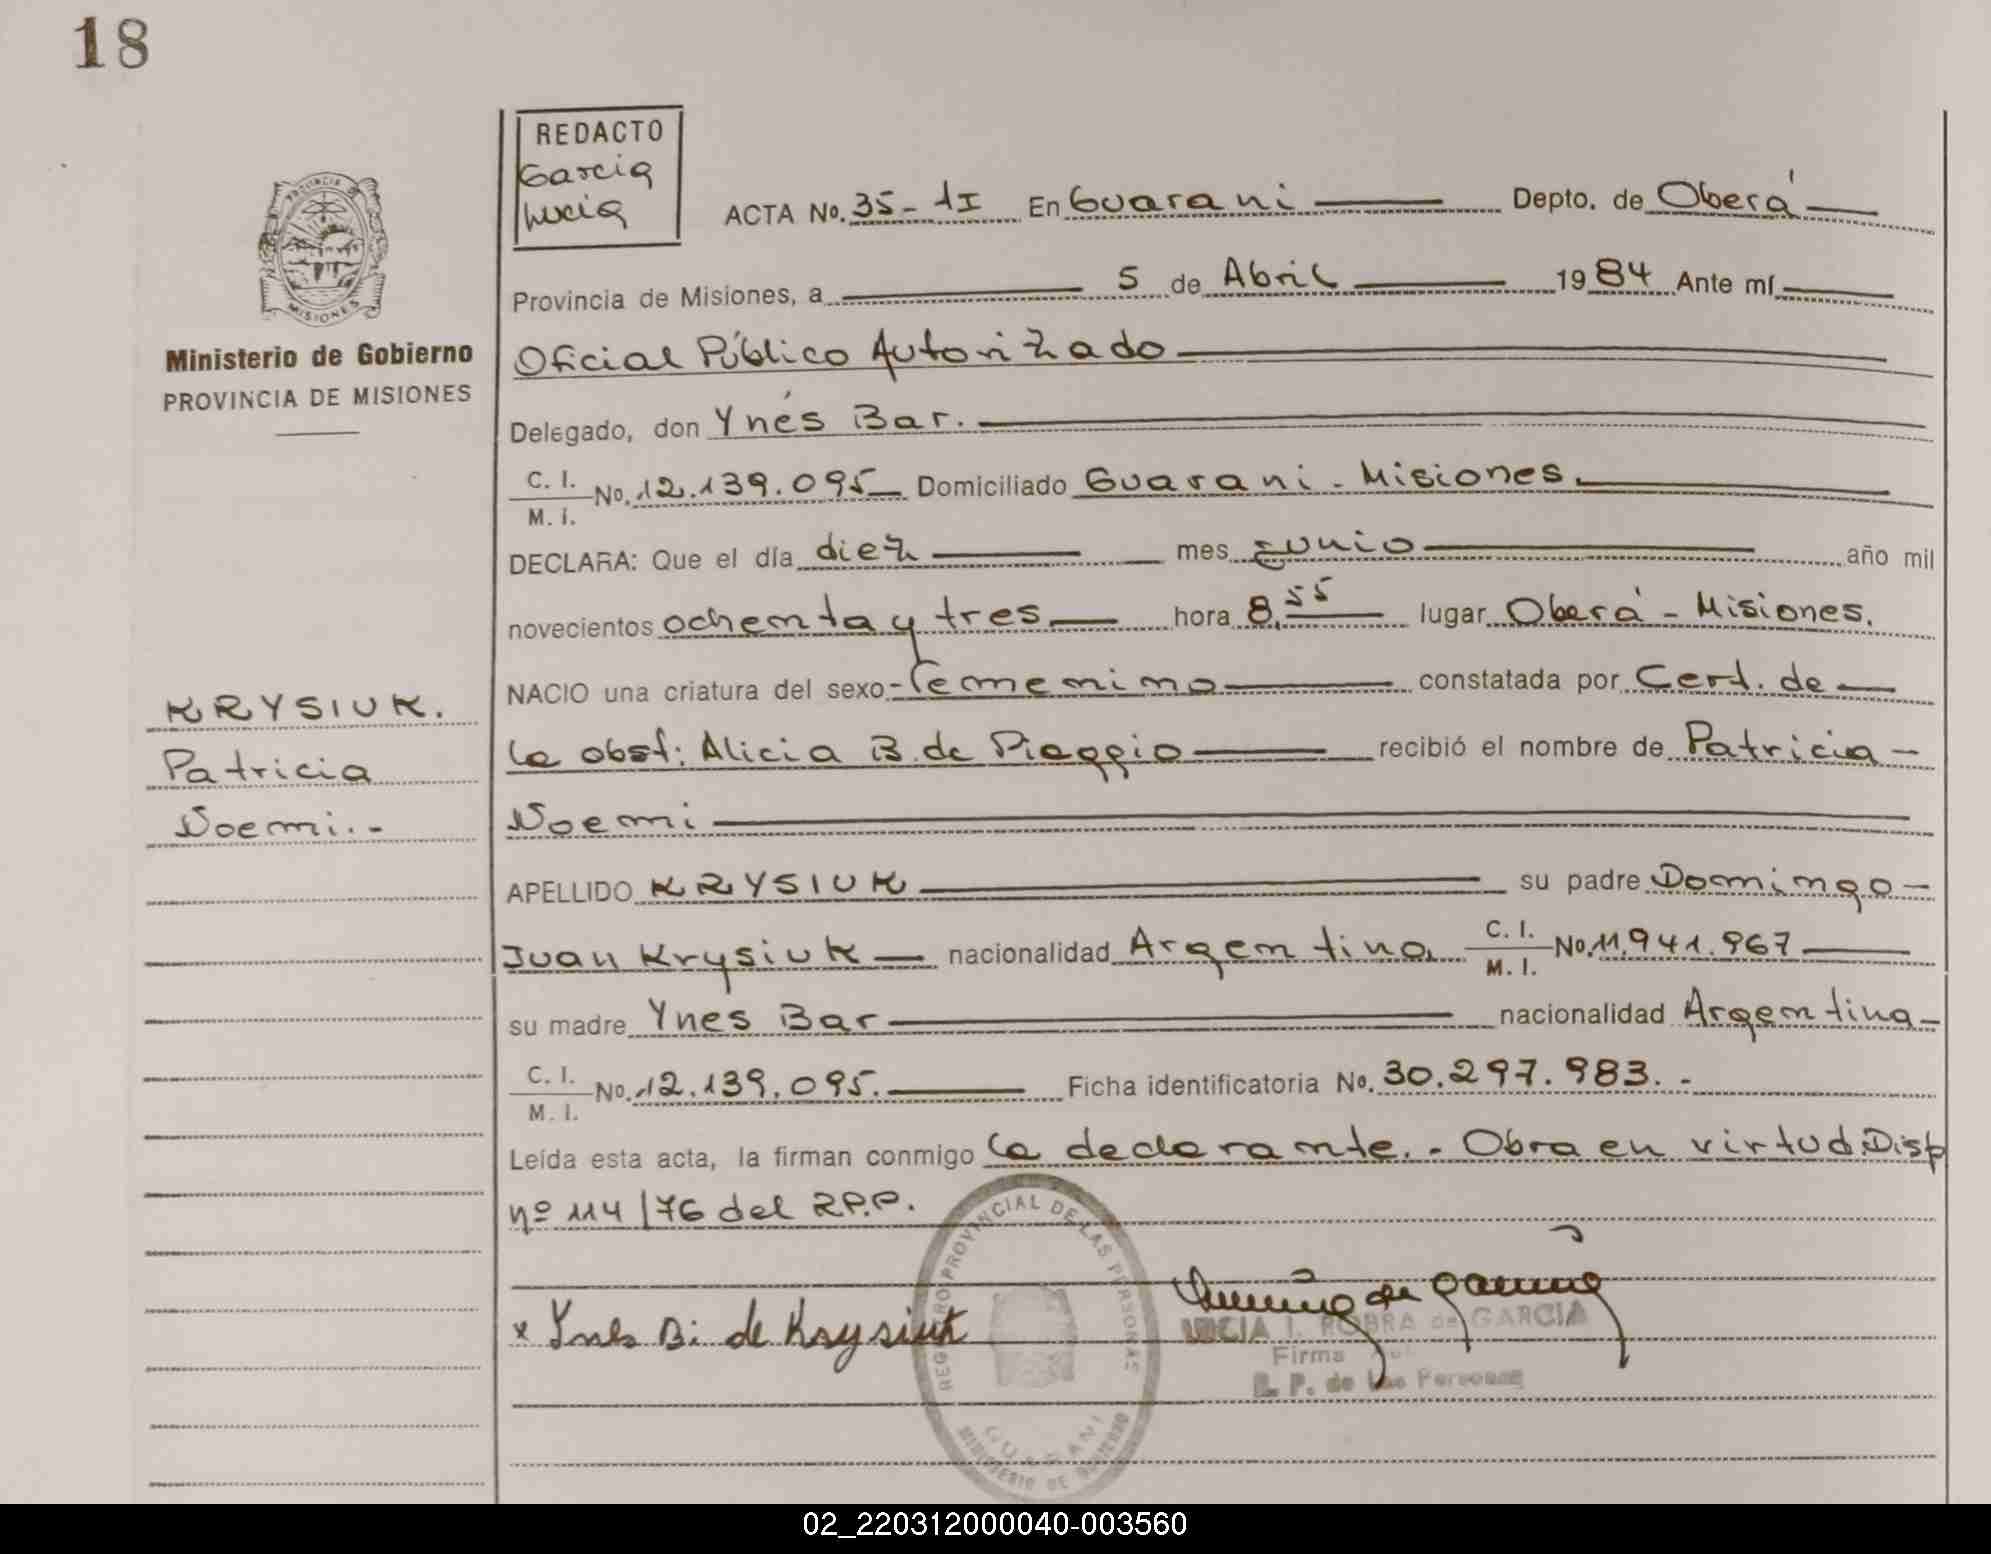 18
REDACTO
Garcia
Lucia
ACTA No. 35-1I En Guarani Depto. de Oberá
Provincia de Misiones, a 5 de Abril 1984 Ante mí
Oficial Público Autorizado
Delegado, don Ynés Bar.
C. I. / M. I. No. 12.139.095 Domiciliado Guarani - Misiones.
DECLARA: Que el día diez mes junio año mil
novecientos ochenta y tres hora 8,55 lugar Oberá - Misiones.
NACIO una criatura del sexo femenino constatada por Cert. de
la obst: Alicia B. de Piaggio recibió el nombre de Patricia
Noemi
APELLIDO KRYSIUK su padre Domingo
Juan Krysiuk nacionalidad Argentina C. I. / M. I. No. 11.941.967
su madre Ynes Bar nacionalidad Argentina
C. I. / M. I. No. 12.139.095. Ficha identificatoria No. 30.297.983.-
Leída esta acta, la firman conmigo la declarante.- Obra en virtud Disp
nº 114/76 del R.P.P.
x Ynes B. de Krysiuk
LUCIA I. ROBRA de GARCIA
Firma
R. P. de las Personas
REGISTRO PROVINCIAL DE LAS PERSONAS
GUARANI
MINISTERIO DE GOBIERNO
PROVINCIA DE
MISIONES
Ministerio de Gobierno
PROVINCIA DE MISIONES
KRYSIUK.
Patricia
Noemi.-
02_220312000040-003560